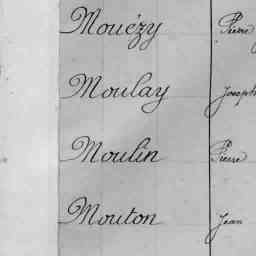 Mouézy Pierre
Moulay Joseph
Moulin Pierre
Mouton Jean